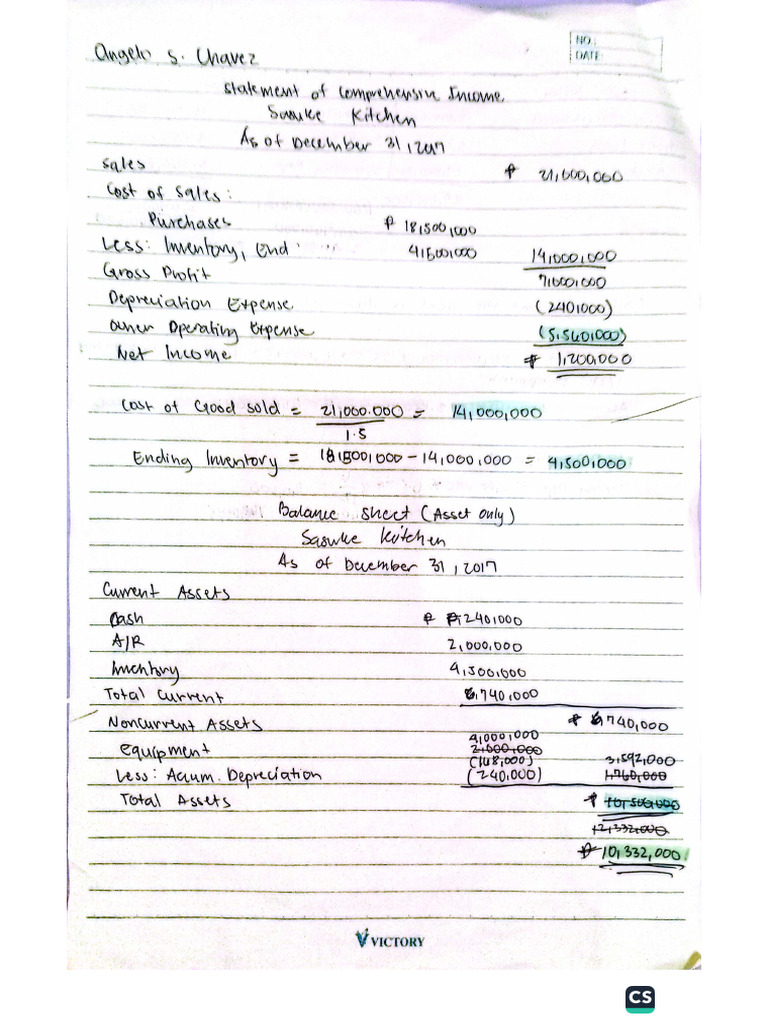 NO.:
DATE:
Angelo S. Chavez
Statement of Comprehensive Income
Sasuke Kitchen
As of December 31, 2017
Sales ₱ 21,000,000
Cost of Sales:
Purchases ₱ 18,500,000
Less: Inventory, End 4,500,000 14,000,000
Gross Profit 7,000,000
Depreciation Expense (240,000)
Other Operating Expense (5,560,000)
Net Income ₱ 1,200,000
Cost of Good Sold = 21,000.000 = 14,000,000
1.5
Ending Inventory = 18,500,000 - 14,000,000 = 4,500,000
Balance Sheet (Asset Only)
Sasuke Kitchen
As of December 31, 2017
Current Assets
Cash ₱ 240,000
A/R 2,000,000
Inventory 4,500,000
Total Current 6,740,000
Noncurrent Assets ₱ 6,740,000
4,000,000
Equipment 2,000,000
(148,000) 3,592,000
Less: Accum. Depreciation (240,000) 1,760,000
Total Assets ₱ 10,500,000
12,332,000
₱ 10,332,000
VICTORY
CS